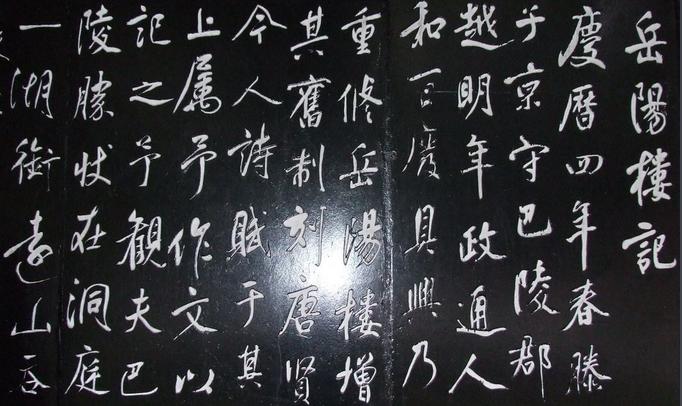 岳陽樓記
慶曆四年春滕
子京守巴陵郡
越明年政通人
和百廢具興乃
重修岳陽樓增
其舊制刻唐賢
今人詩賦于其
上属予作文以
記之予觀夫巴
陵勝狀在洞庭
一湖銜遠山吞